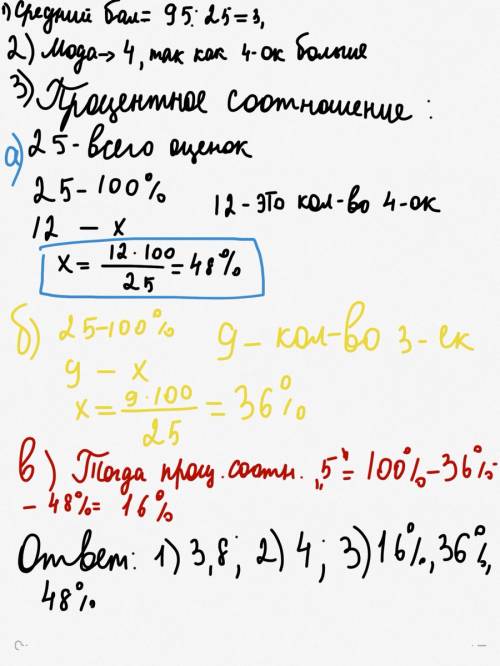 1) Средний бал = 95:25=3,
2) Мода→4, так как 4-ок больше
3) Процентное соотношение:
а) 25-всего оценок
25-100%
12-это кол-во 4-ок
12 - x
x = 12·100/25 = 48%
б) 25-100%
9 - кол-во 3-ек
9 - x
x = 9·100/25 = 36%
в) Тогда проц. соотн. „5“ = 100%-36%-
- 48% = 16%
Ответ: 1) 3,8; 2) 4; 3) 16%, 36%,
48%